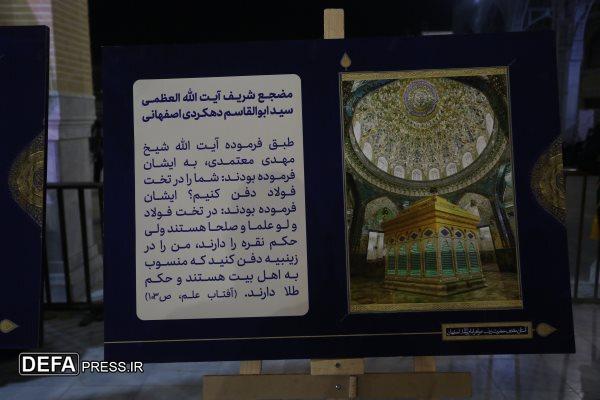 مضجع شریف آیت الله العظمی
سید ابوالقاسم دهکردی اصفهانی
طبق فرموده آیت الله شیخ
مهدی معتمدی، به ایشان
فرموده بودند: شما را در تخت
فولاد دفن کنیم؟ ایشان
فرموده بودند: در تخت فولاد
و لو علما و صلحا هستند ولی
حکم نقره را دارند، من را در
زینبیه دفن کنید که منسوب
به اهل بیت هستند و حکم
طلا دارند. (آفتاب علم، ص۱۰۳)
آستان مقدس حضرت زینب اصفهان
DEFAPRESS.IR